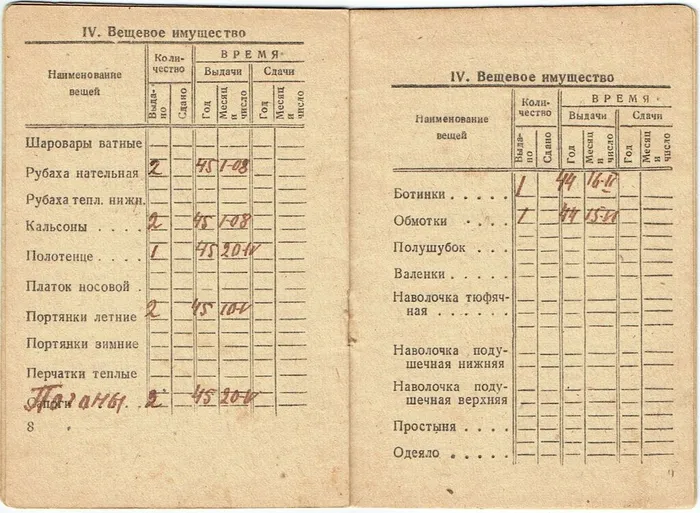 IV. Вещевое имущество
Наименование вещей
Количество
ВРЕМЯ
Выдачи
Сдачи
Выдано
Сдано
Год
Месяц и число
Год
Месяц и число
Шаровары ватные
Рубаха нательная 2 45 1-08
Рубаха тепл. нижн.
Кальсоны . . . . 2 45 1-08
Полотенце . . . . 1 45 20-IV
Платок носовой .
Портянки летние 2 45 10-V
Портянки зимние
Перчатки теплые
Погоны 2 45 20-VI
8
IV. Вещевое имущество
Наименование вещей
Количество
ВРЕМЯ
Выдачи
Сдачи
Выдано
Сдано
Год
Месяц и число
Год
Месяц и число
Ботинки . . . . . 1 44 16-II
Обмотки . . . . . 1 44 15-VI
Полушубок . . .
Валенки . . . . .
Наволочка тюфяч-
ная . . . . . .
Наволочка поду-
шечная нижняя
Наволочка поду-
шечная верхняя
Простыня . . . .
Одеяло . . . . .